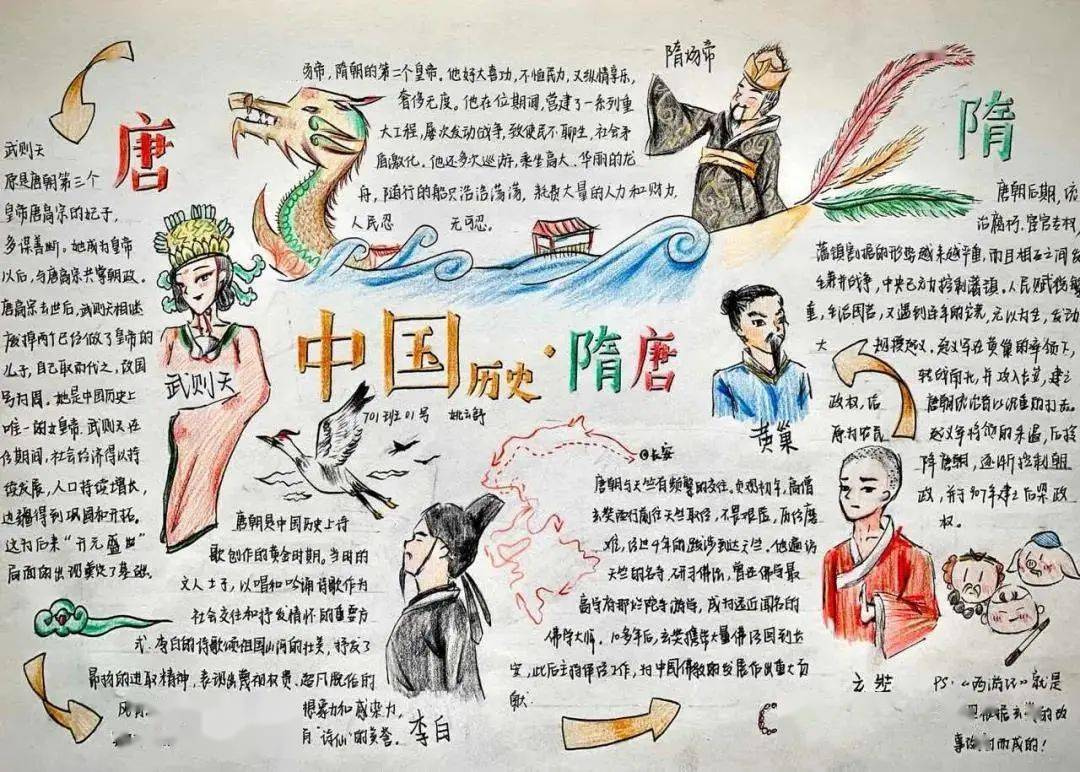 唐
武则天
原是唐朝第三个
皇帝唐高宗的妃子,
多谋善断。她成为皇帝
以后,与唐高宗共掌朝政。
唐高宗去世后,武则天相继
废掉两个已经做了皇帝的
儿子,自己取而代之,改国
号为周。她是中国历史上
唯一的女皇帝。武则天在
位期间,社会经济得以持
续发展,人口持续增长,
边疆得到巩固和开拓。
这为后来"开元盛世"
局面的出现奠定了基础。
武则天
炀帝,隋朝的第二个皇帝。他好大喜功,不恤民力,又纵情享乐,
奢侈无度。他在位期间,营建了一系列重
大工程,屡次发动战争,致使民不聊生,社会矛
盾激化。他还多次巡游,乘坐高大、华丽的龙
舟,随行的船只浩浩荡荡,耗费大量的人力和财力,
人民忍 无可忍.
隋炀帝
隋
唐朝后期,统
治腐朽,宦官专权,
藩镇割据的形势越来越严重,而且相互之间
兼并战争,中央已无力控制藩镇。人民赋税繁
重,生活困苦,又遇到连年的灾荒,无以为生,发动
大 规模起义。起义军在黄巢的率领下,
转战南北,并攻入长安,建立
政权,给 唐朝统治者以沉重的打击。
起义军将领朱温,后投
降唐朝,逐渐控制朝
政,并于907年建立后梁政
权。
黄巢
中国历史·隋唐
701班01号 姚云舒
唐朝是中国历史上诗
歌创作的黄金时期。当时的
文人士子,以唱和吟诵诗歌作为
社会交往和抒发情怀的重要方
式.李白的诗歌颂祖国山河的壮美,抒发了
昂扬的进取精神,表现出蔑视权贵、超凡脱俗的
风
感染力,
有"诗仙"的美誉。
李白
长安
唐朝与天竺有频繁的交往。贞观初年,高僧
玄奘西行前往天竺取经,不畏艰险,历经磨
难,经过4年的跋涉到达天竺。他遍访
天竺的名寺,研习佛法,曾在佛学最
高学府那烂陀寺游学,成为远近闻名的
佛学大师。10多年后,玄奘携带大量佛经回到长
安,此后主持译经工作,为中国佛教的发展作出重大贡
献.
玄奘
PS.《西游记》就是
根据玄 的故
事 而成的!